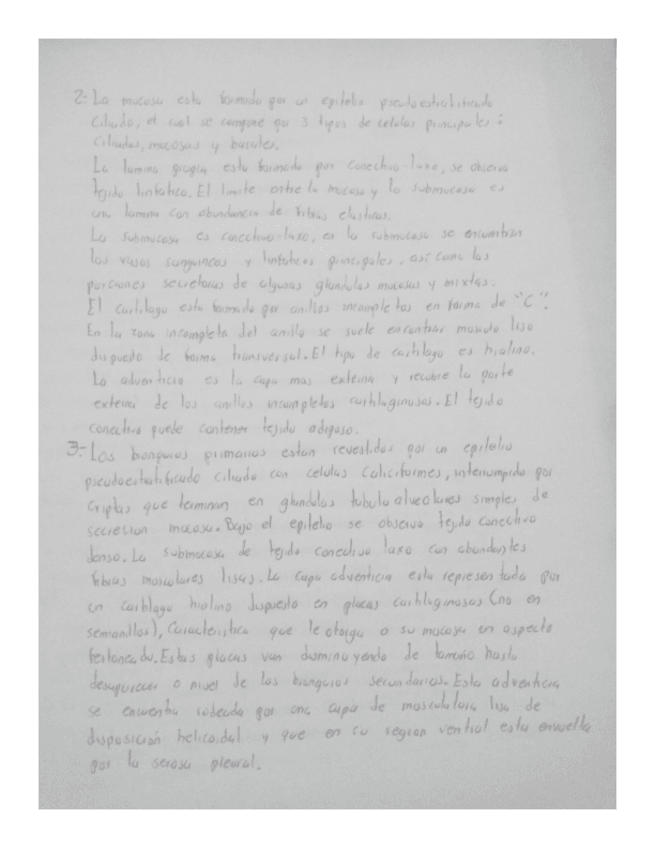 2.- La mucosa esta formada por un epitelio pseudoestratificado
Ciliado, el cual se compone por 3 tipos de celulas principales:
Ciliadas, mucosas y basales.
La lamina propia esta formada por conectivo laxo, se observa
tejido linfatico. El limite entre la mucosa y la submucosa es
una lamina con abundancia de fibras elasticas.
La submucosa es conectivo-laxo, en la submucosa se encuentran
los vasos sanguineos y linfaticos principales, asi como las
porciones secretoras de algunas glandulas mucosas y mixtas.
El cartilago esta formado por anillos incompletos en forma de "C".
En la zona incompleta del anillo se suele encontrar musculo liso
dispuesto de forma transversal. El tipo de cartilago es hialino.
La adventicia es la capa mas externa y recubre la parte
externa de los anillos incompletos cartilaginosos. El tejido
conectivo puede contener tejido adiposo.
3.- Los bronquios primarios estan revestidos por un epitelio
pseudoestratificado ciliado con celulas Caliciformes, interrumpido por
Criptas que terminan en glandulas tubulo alveolares simples de
secrecion mucosa. Bajo el epitelio se observa tejido conectivo
denso. La submucosa de tejido conectivo laxo con abundantes
fibras musculares lisas. La capa adventicia esta representada por
un cartilago hialino dispuesto en placas cartilaginosas (no en
semanillos), Caracteristica que le otorga a su mucosa un aspecto
festoneado. Estas placas van disminuyendo de tamaño hasta
desaparecer a nivel de los bronquios secundarios. Esta adventicia
se encuentra rodeada por una capa de musculatura lisa de
disposición helicoidal y que en su region ventral esta envuelta
por la serosa pleural.